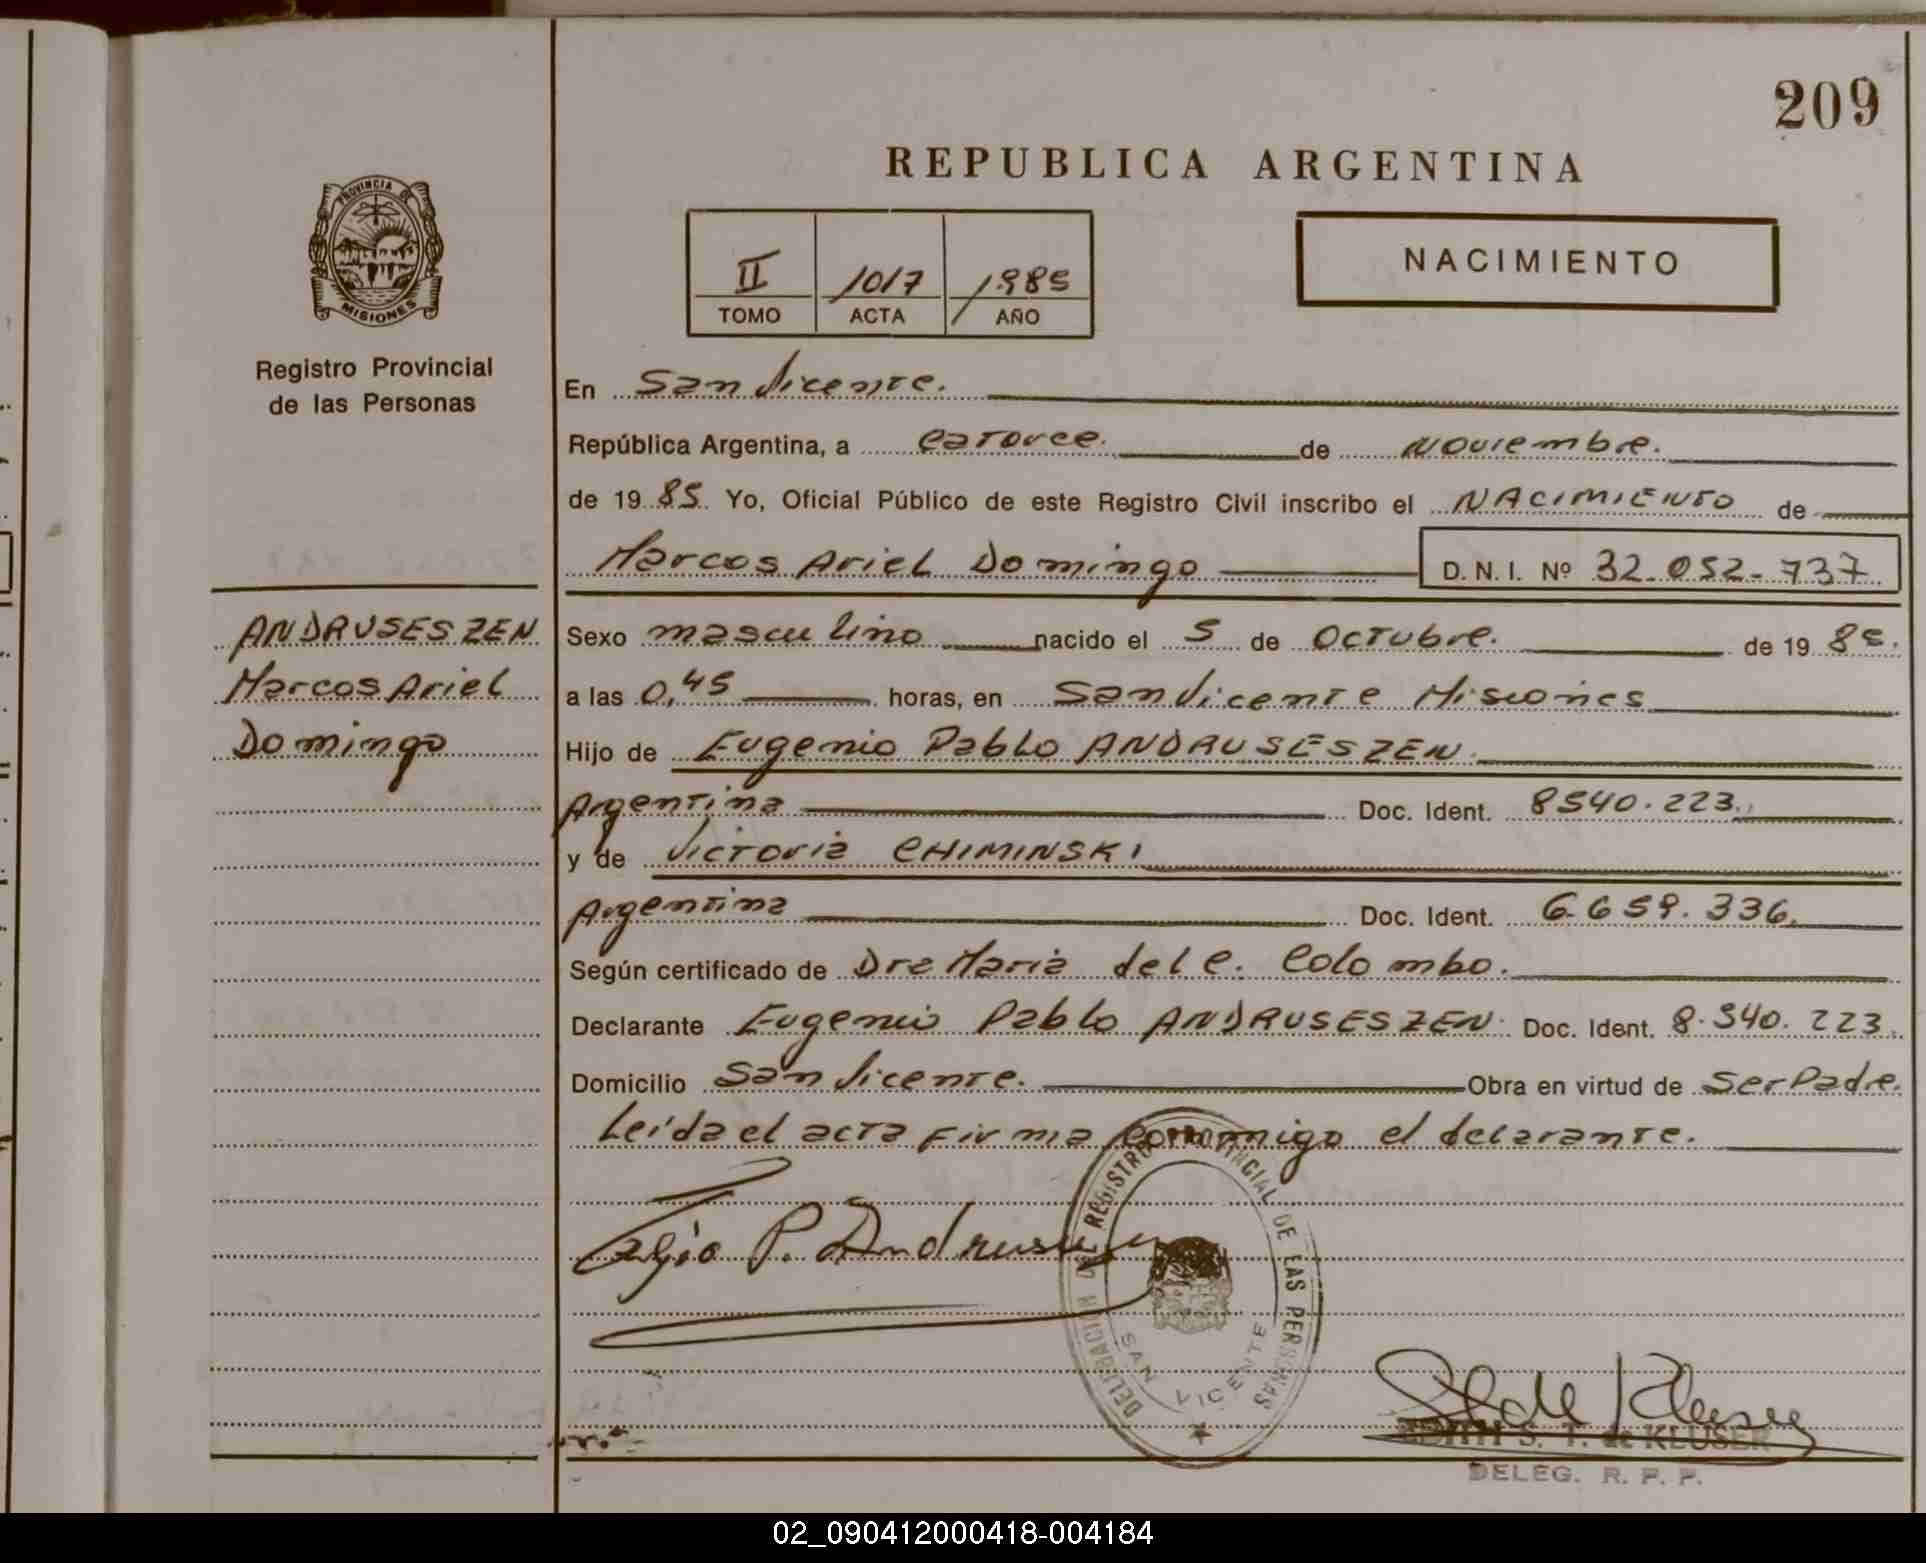 209
REPUBLICA ARGENTINA
PROVINCIA DE
MISIONES
Registro Provincial
de las Personas
II 1017 1985
TOMO ACTA AÑO
NACIMIENTO
En San Vicente.
República Argentina, a catorce. de noviembre.
de 19 85 Yo, Oficial Público de este Registro Civil inscribo el NACIMIENTO de
Marcos Ariel Domingo D. N. I. Nº 32.052.737
ANDRUSESZEN
Marcos Ariel
Domingo
Sexo masculino nacido el 5 de octubre. de 19 85.
a las 0,45 horas, en San Vicente Misiones
Hijo de Eugenio Pablo ANDRUSESZEN.
Argentina Doc. Ident. 8540.223.
y de Victoria CHIMINSKI
Argentina Doc. Ident. 6.659.336.
Según certificado de Dra Maria del C. Colombo.
Declarante Eugenio Pablo ANDRUSESZEN. Doc. Ident. 8.540.223.
Domicilio San Vicente. Obra en virtud de ser Padre.
Leída el acta firma conmigo el declarante.
P. Andruse
DELEGACION DEL REGISTRO PROVINCIAL DE LAS PERSONAS
SAN VICENTE
de Kluser
EDITH S. T. de KLUSER
DELEG. R. P. P.
02_090412000418-004184